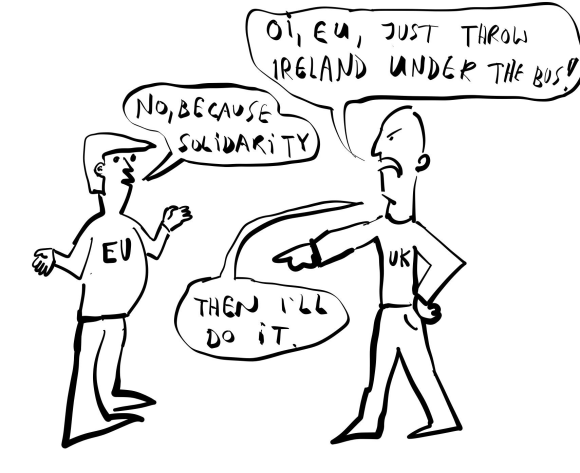 Oi, EU, JUST THROW
IRELAND UNDER THE BUS!
NO, BECAUSE
SOLiDARiTY
EU
UK
THEN I'LL
DO iT.